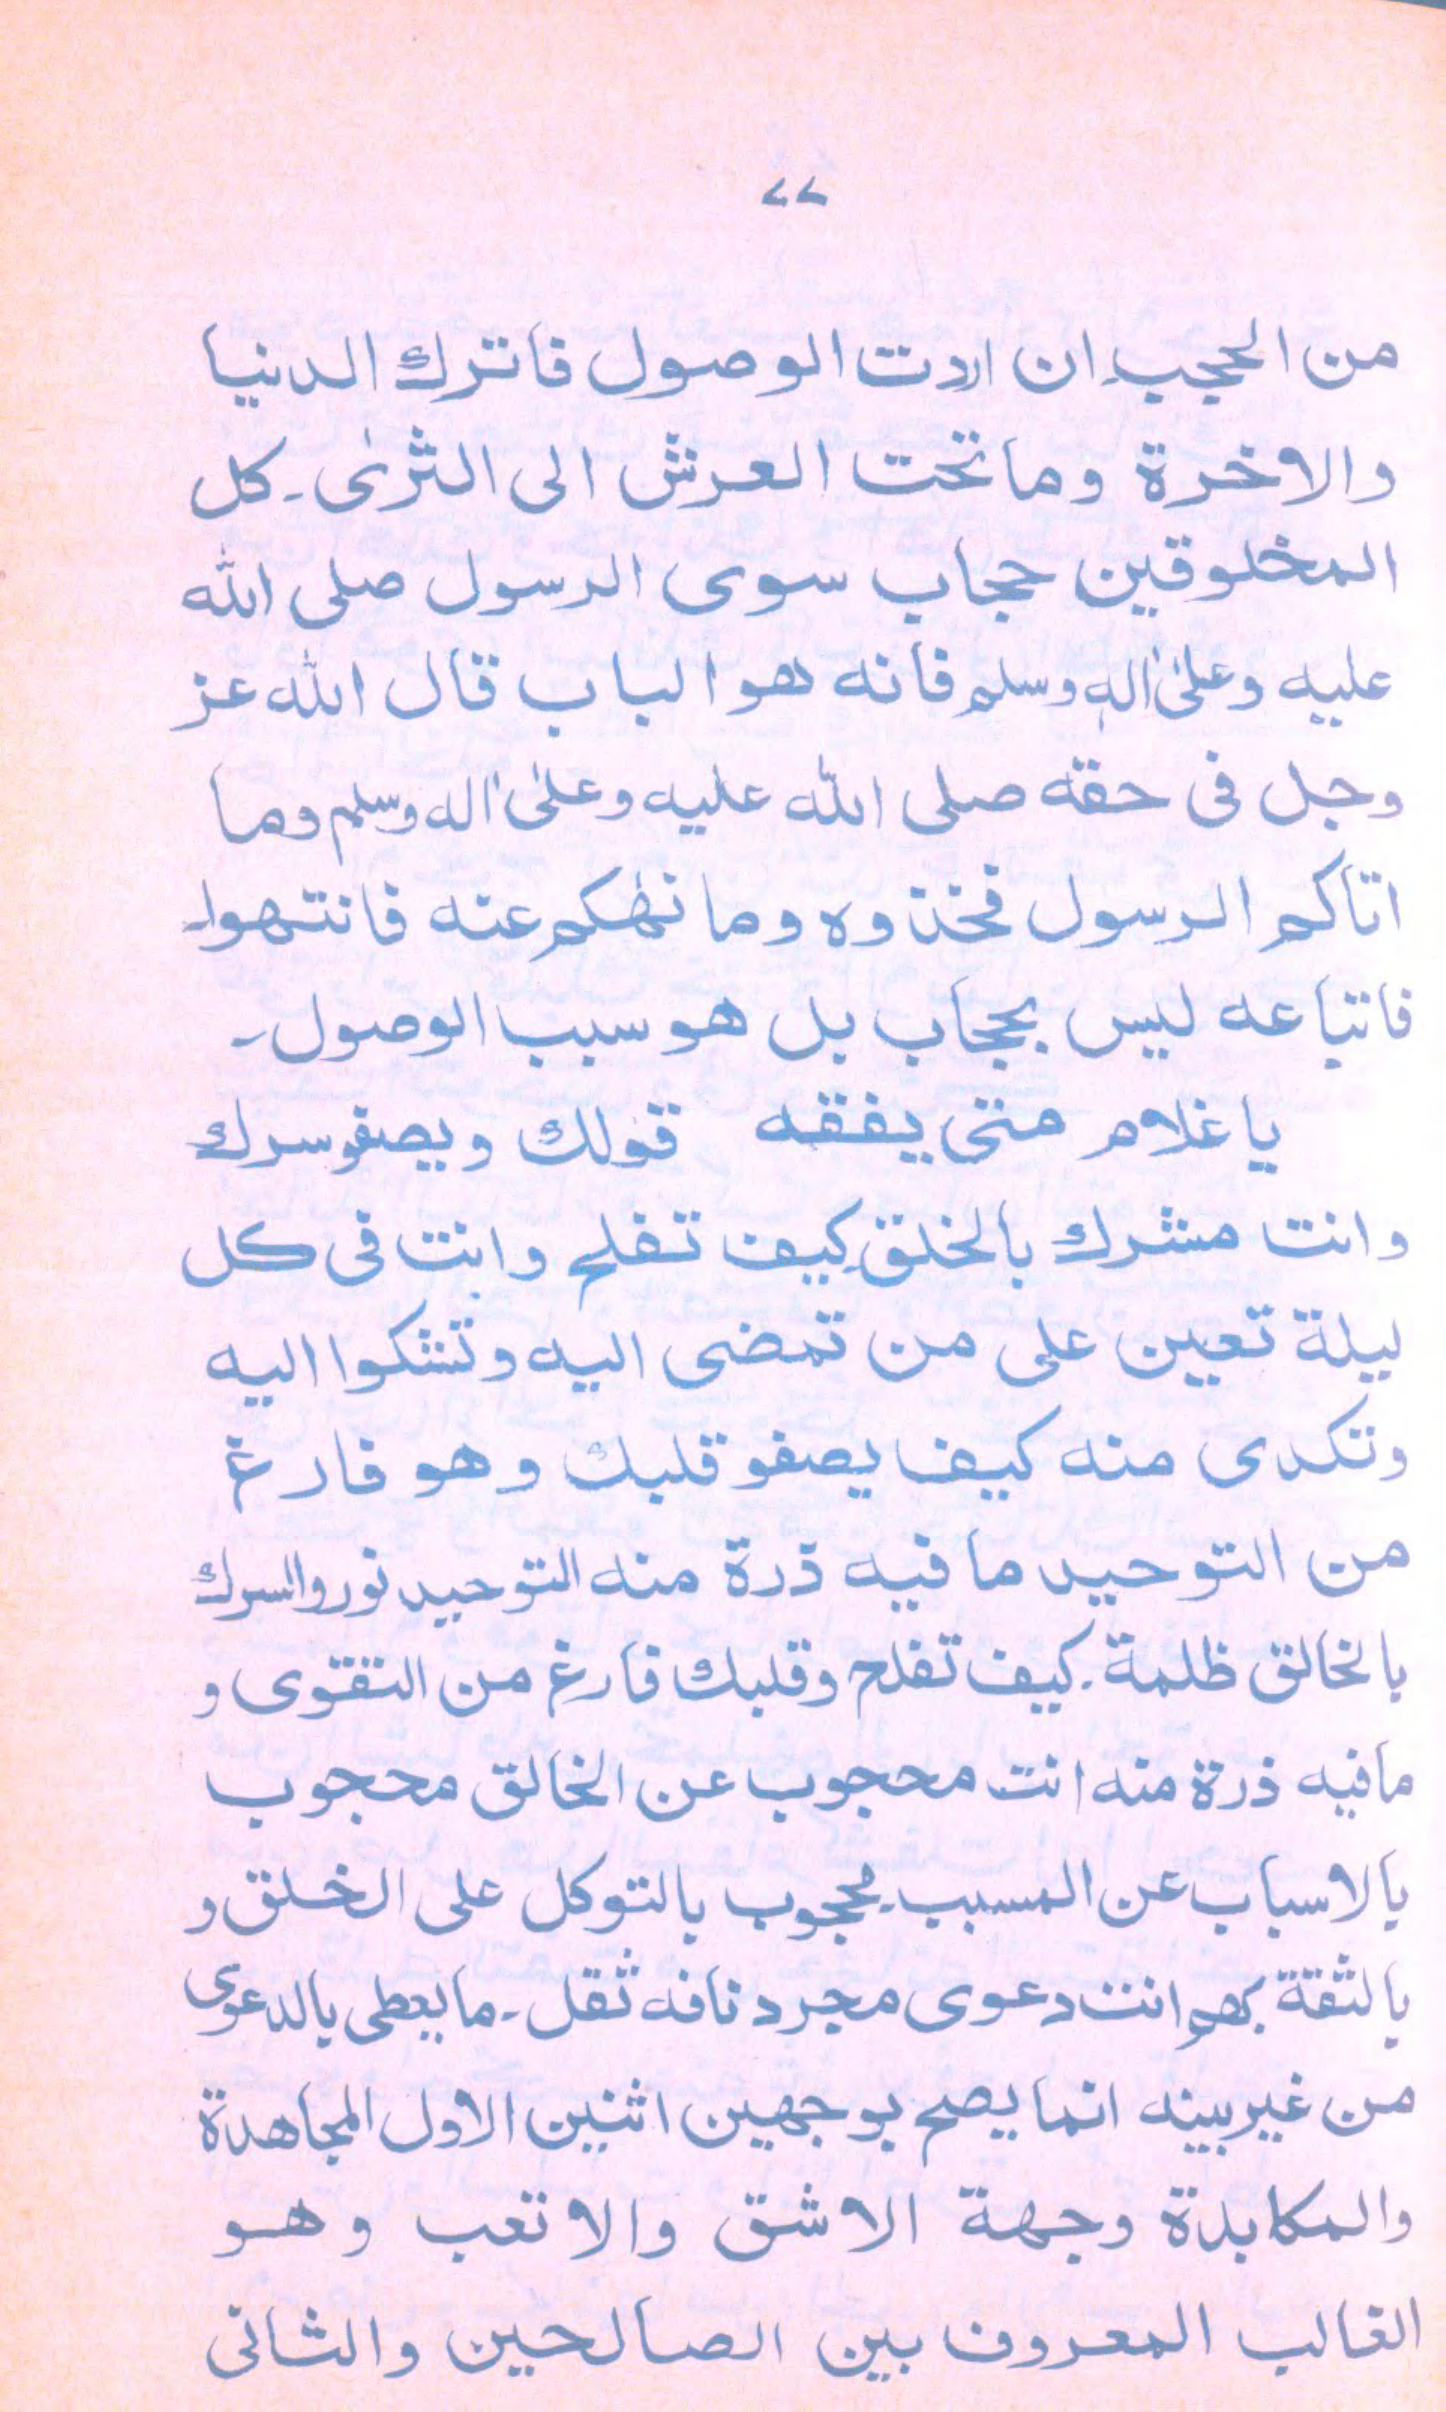 ۷۷
من الحجب۔ ان اردت الوصول فاترك الدنيا
والاخرة وما تحت العرش الى الثرىٰ۔ كل
المخلوقين حجاب سوى الرسول صلى الله
عليه وعلىٰ اله وسلم فانه هو الباب قال الله عز
وجل فى حقه صلى الله عليه وعلىٰ اله وسلم وما
اتاكم الرسول فخذوه وما نهٰكم عنه فانتهوا۔
فاتباعه ليس بحجاب بل هو سبب الوصول۔
يا غلام متى يفقه قولك ويصفو سرك
وانت مشرك بالخلق كيف تفلح وانت فى كل
ليلة تعين على من تمضى اليه وتشكوا اليه
وتكدى منه كيف يصفو قلبك وهو فارغ
من التوحيد ما فيه ذرة منه التوحيد نور والسرك
بالخالق ظلمة۔ كيف تفلح وقلبك فارغ من التقوى و
مافيه ذرة منه انت محجوب عن الخالق محجوب
بالاسباب عن المسبب۔ محجوب بالتوكل على الخلق و
بالثقة بهم انت دعوى مجرد نافه ثقل۔ ما يعطى بالدعوى
من غير بينه انما يصح بوجهين اثنين الاول المجاهدة
والمكابدة وجهة الاشق والاتعب وهو
الغالب المعروف بين الصالحين والثانى